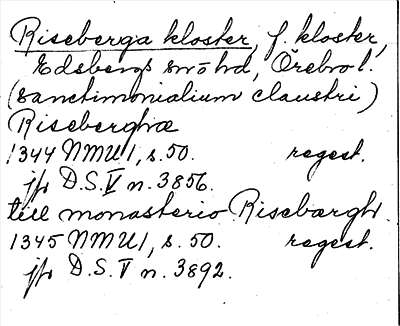 Riseberga kloster, f. kloster,
Edsbergs sn o hd, Örebro l.
(sanctimonialium claustri)
Riseberghæ
1344 NMU 1, s. 50. regest.
jfr D.S. V n. 3856.
till monasterio Risebærgh.
1345 NMU 1, s. 50. regest.
jfr D.S. V n. 3892.